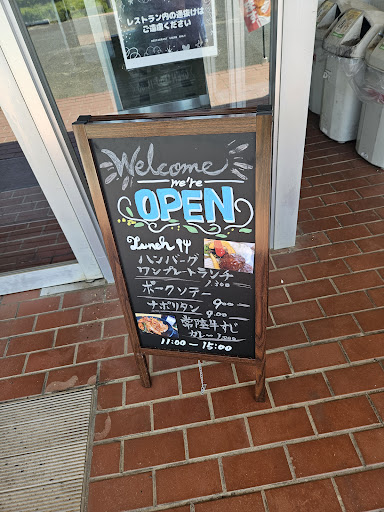 レストラン内の通抜けは
ご遠慮ください
Welcome
we're
OPEN
Lunch
ハンバーグ
ワンプレートランチ
1,300
ポークソテー
900
ナポリタン 900
常陸牛すじ
カレー 1,000
11:00 ー 15:00